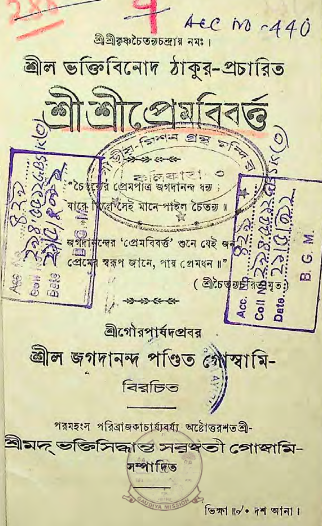 ACC NO - 440
শ্রীশ্রীকৃষ্ণচৈতন্যচন্দ্রায় নমঃ।
শ্রীল ভক্তিবিনোদ ঠাকুর-প্রচারিত
শ্রীশ্রীপ্রেমবিবর্ত্ত
"চৈতন্যের প্রেমপাত্র জগদানন্দ ধন্য।
যারে মিলে সেই মানে পাইল চৈতন্য॥
জগদানন্দের 'প্রেমবিবর্ত্ত' শুনে যেই জন
প্রেমের স্বরূপ জানে, পায় প্রেমধন॥"
( শ্রীচৈতন্যচরিতামৃত )
B. G. M.
Acc. No
Coll No
Date
শ্রীগৌরপার্ষদপ্রবর
শ্রীল জগদানন্দ পণ্ডিত গোস্বামি-
বিরচিত
পরমহংস পরিব্রাজকাচার্য্যবর্য্য অষ্টোত্তরশতশ্রী-
শ্রীমদ্ ভক্তিসিদ্ধান্ত সরস্বতী গোস্বামি-
সম্পাদিত
GAUDIYA MISSION
ভিক্ষা ॥৵০ দশ আনা।